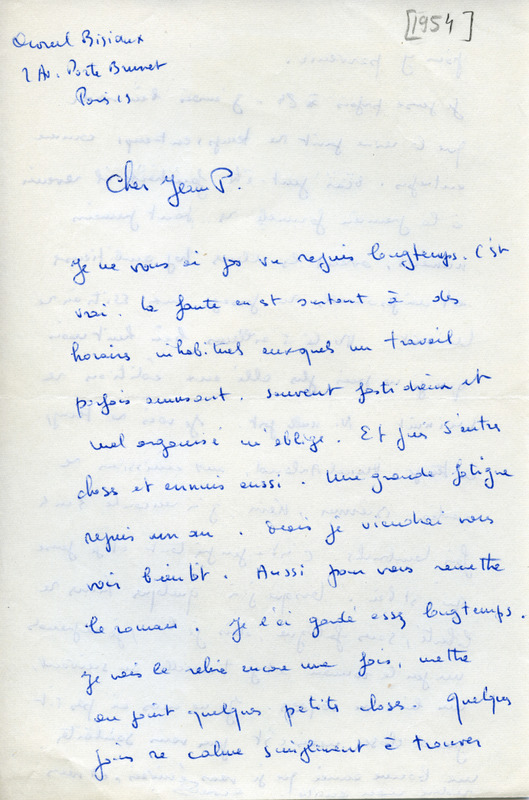 [1954]
Marcel Bisiaux
2 Av. Porte Brunet
Paris 19
Cher Jean P.
Je ne vous ai pas vu depuis longtemps. C'est
vrai. La faute en est surtout à des
horaires inhabituels auxquels un travail
parfois amusant, souvent fastidieux et
mal organisé m'oblige. Et puis d'autres
choses et ennuis aussi. Une grande fatigue
depuis un an. Mais je viendrai vous
voir bientôt. Aussi pour vous remettre
le roman. Je l'ai gardé assez longtemps.
Je vais le relire encore une fois, mettre
au point quelques petites choses. Quelques
jours de calme simplement à trouver